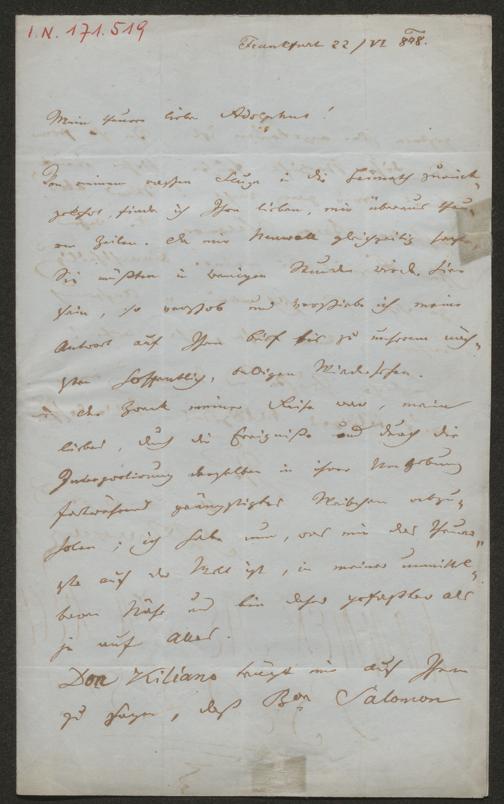 I.N. 171.519
Frankfurt 22/VI 848.
Mein theurer lieber Adolphus!
Von einem raschen Zuge in die Heimath zurück-
gekehrt, finde ich Ihre lieben, mir überaus theu-
ren Zeilen. Da mir gleichzeitig
Sie müßten in wenigen Stunden wieder hier
sein, so verschob und verschiebe ich meine
Antwort auf Ihren Brief bis zu unserem näch-
sten hoffentlich, baldigen Wiedersehen.
Der Zweck meiner Reise war, mein
liebes, durch die Ereignisse und durch die
Interpretirung derselben in ihrer Umgebung
fortwährend geängstigtes Weibchen abzu-
holen; ich habe nun, was mir das Theuer-
ste auf der Welt ist, in meiner unmittel-
baren Nähe und bin daher gefaßter als
je auf alles.
Don Kiliano trägt mir auf Ihnen
zu sagen, daß Bon Salomon